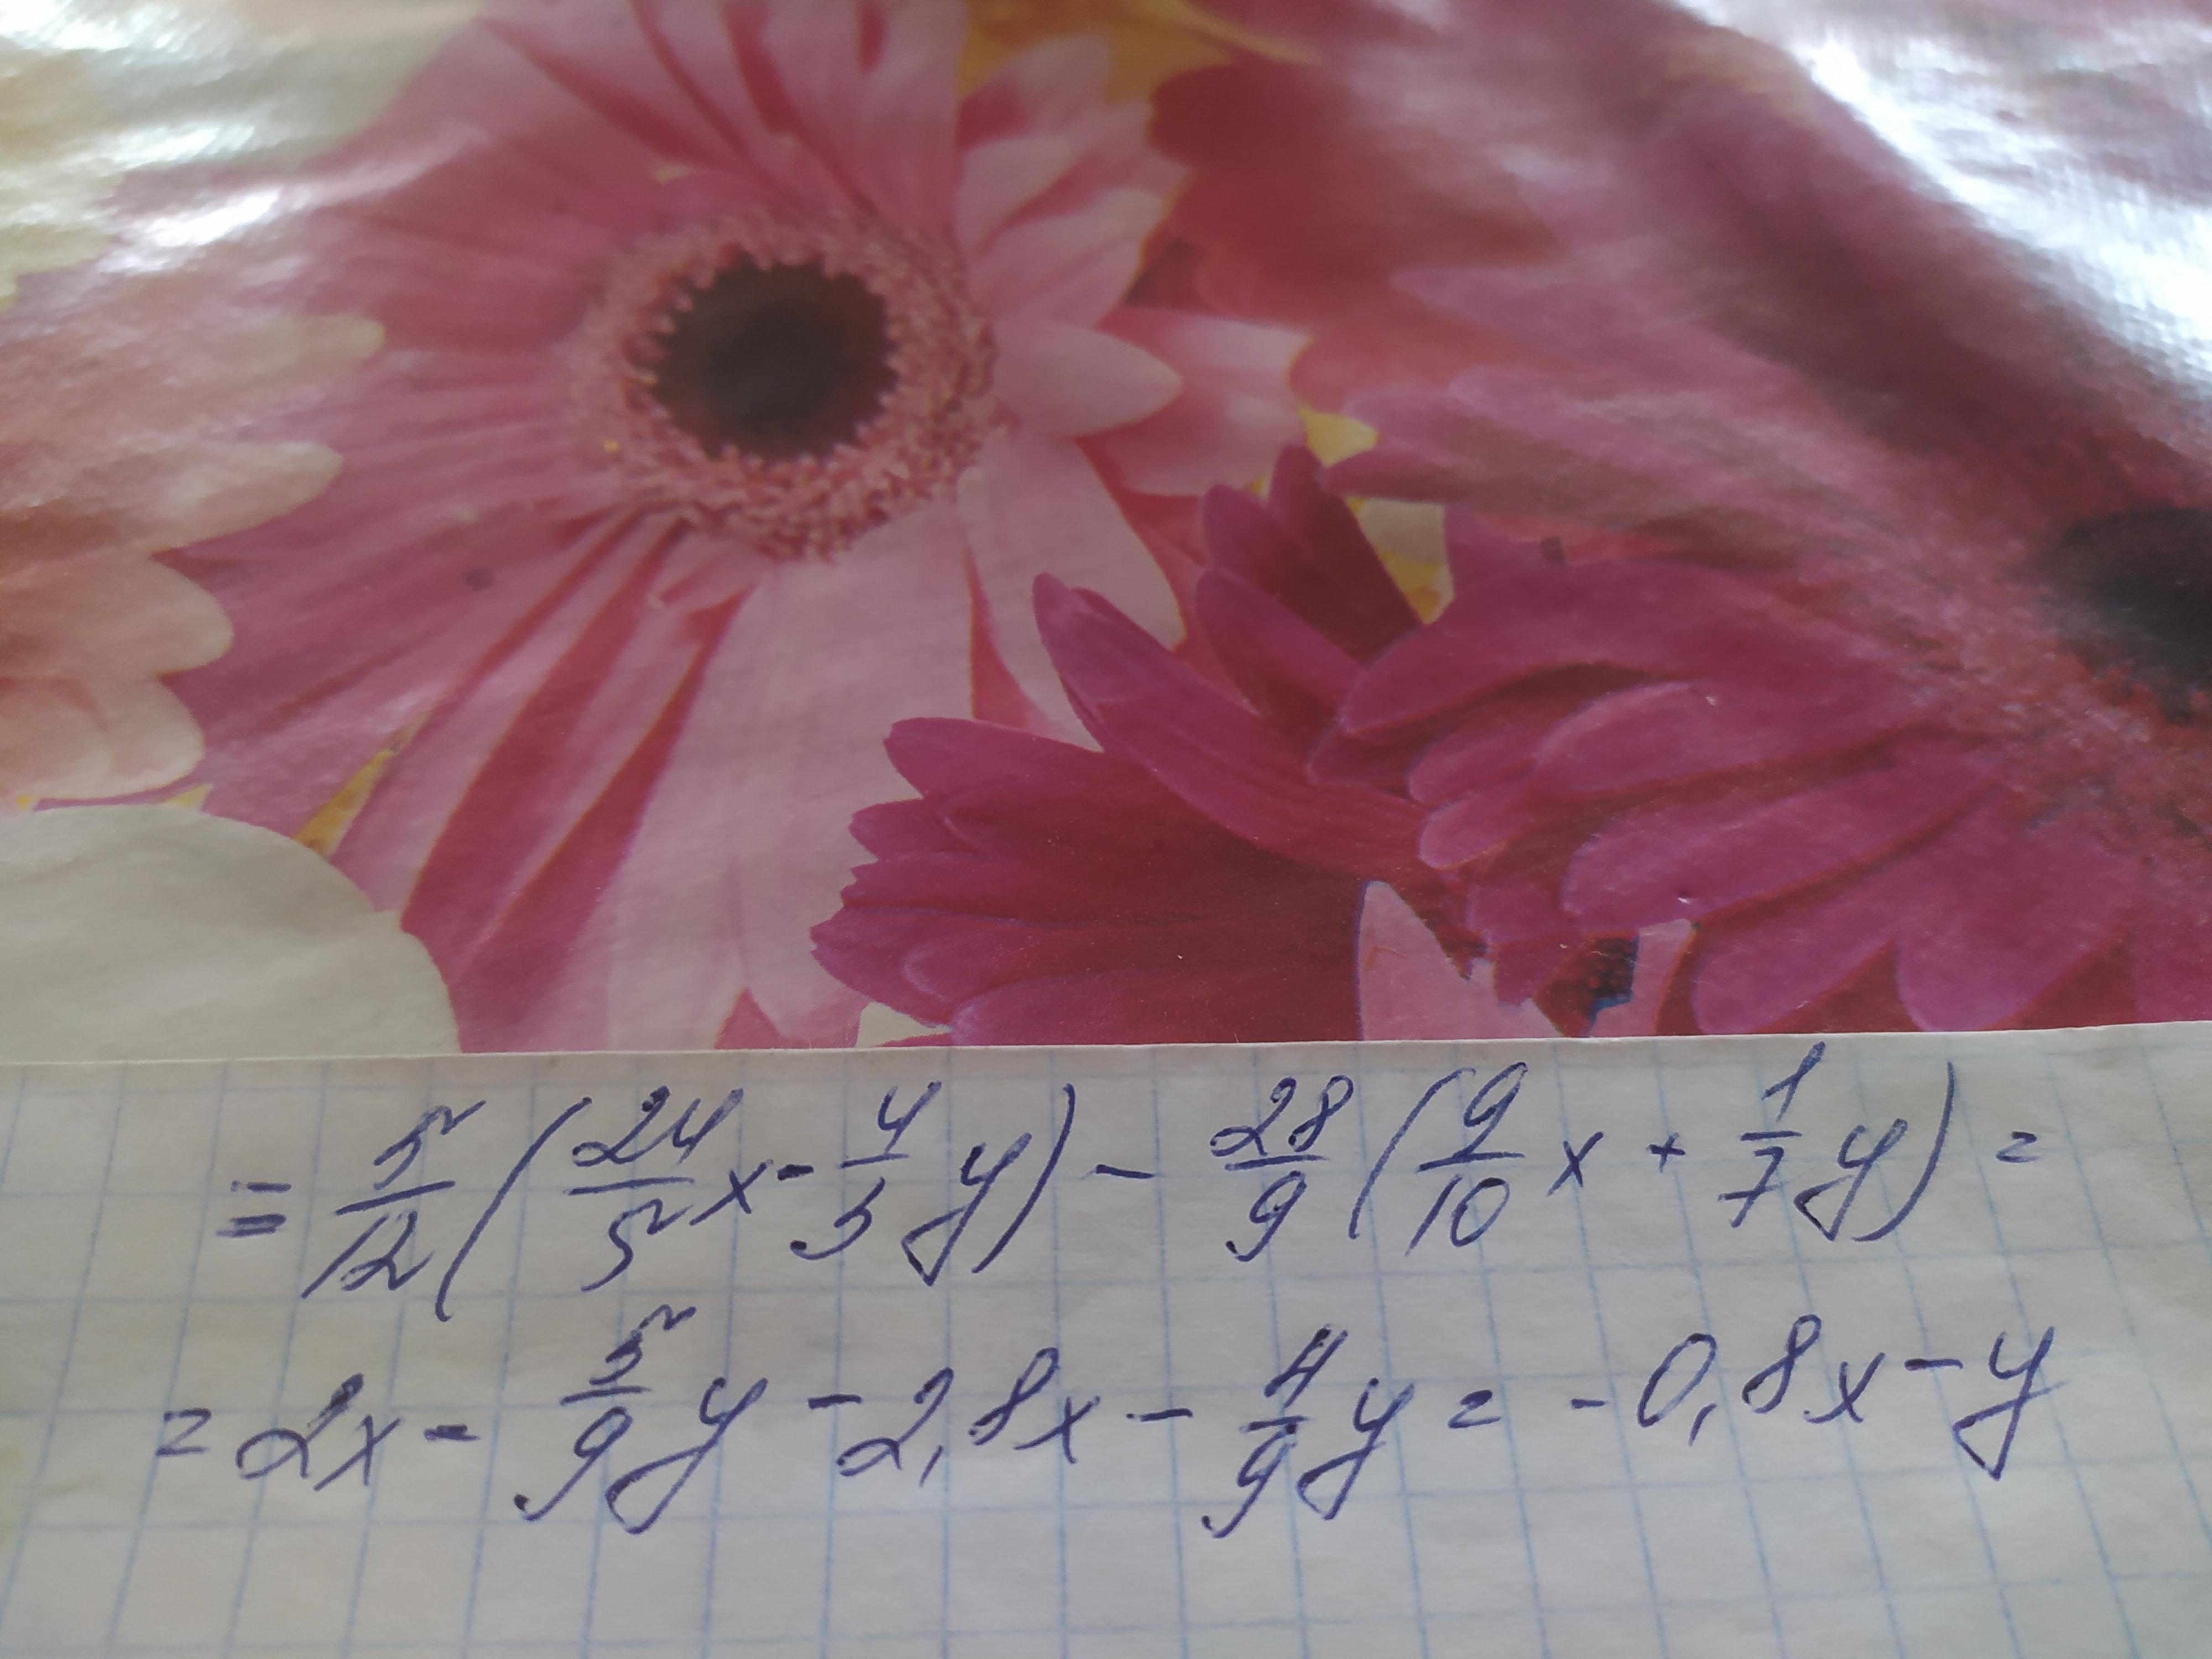 = 5/12 (24/5 x - 4/3 y) - 28/9 (9/10 x + 1/7 y) =
= 2x - 5/9 y - 2,8x - 4/9 y = -0,8x - y